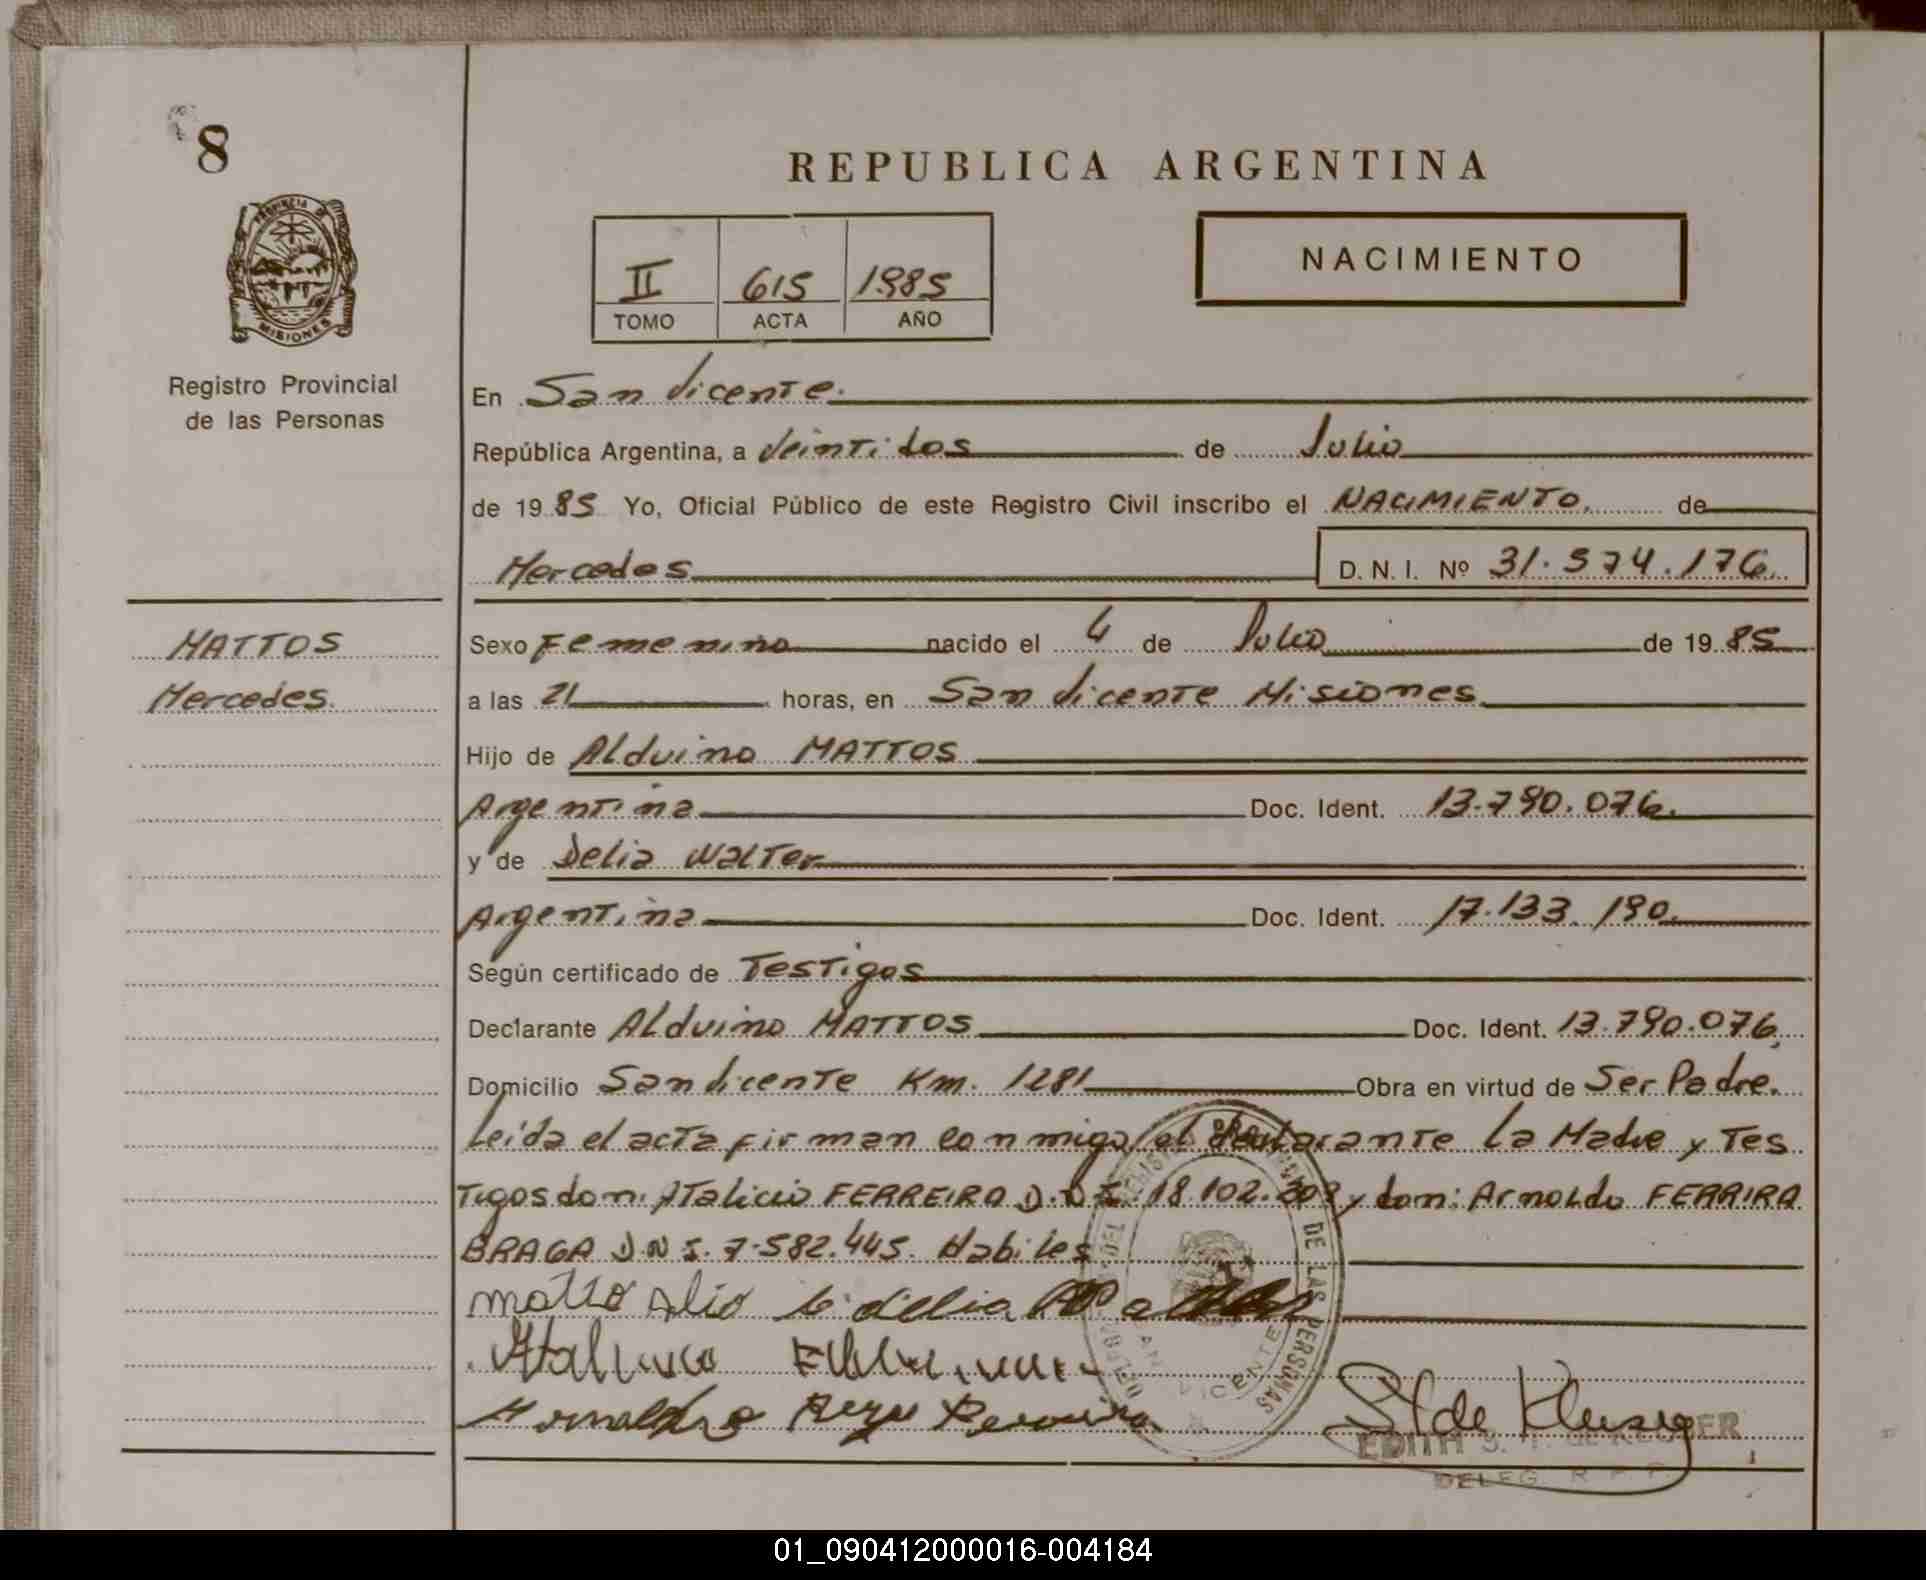 8
PROVINCIA DE
MISIONES
Registro Provincial
de las Personas
REPUBLICA ARGENTINA
II 615 1985
TOMO ACTA AÑO
NACIMIENTO
En San Vicente.
República Argentina, a Veintidos de Julio
de 1985 Yo, Oficial Público de este Registro Civil inscribo el NACIMIENTO. de
Mercedes D. N. I. Nº 31.574.176.
MATTOS
Mercedes.
Sexo Femenino nacido el 4 de Julio de 1985
a las 21 horas, en San Vicente Misiones
Hijo de Alduino MATTOS
Argentina Doc. Ident. 13.790.076.
y de Delia Walter
Argentina Doc. Ident. 17.133.190.
Según certificado de Testigos
Declarante Alduino MATTOS Doc. Ident. 13.790.076.
Domicilio San Vicente Km. 1281 Obra en virtud de Ser Padre.
Leida el acta firman conmigo, el declarante La Madre y Tes
Tigos don: Atalicio FERREIRA D.N.I. 18.102. y don: Arnoldo FERRIRA
BRAGA D.N.I. 7.582.445. Habiles
delia
DE LAS PERSONAS
VICENTE
S de Kluser
EDITH S. T. de KLUSER
DELEG. R P P
01_090412000016-004184